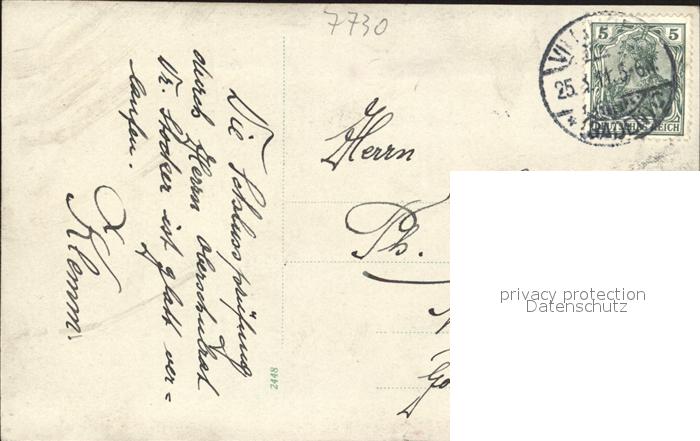 7730
Die Schlussprüfung
durch Herrn Oberschulrat
Dr. Stocker ist glatt ver=
laufen.
Klemm.
Herrn
Ph.
2448
5 5
DEUTSCHES REICH
25. 3. 11. 5-6N
(BADEN)
privacy protection
Datenschutz